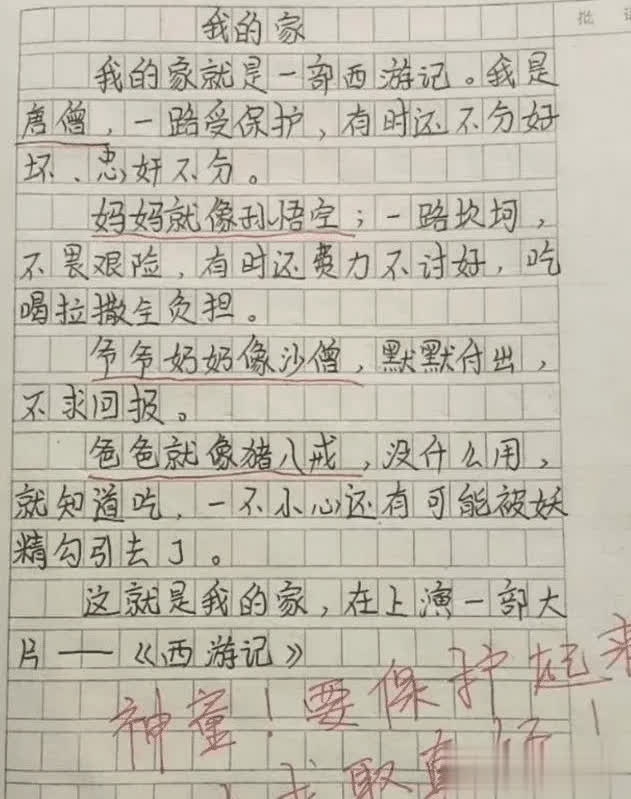 批
我的家
我的家就是一部西游记。我是
唐僧，一路受保护，有时还不分好
坏、忠奸不分。
妈妈就像孙悟空；一路坎坷，
不畏艰险，有时还费力不讨好，吃
喝拉撒全负担。
爷爷奶奶像沙僧，默默付出，
不求回报。
爸爸就像猪八戒，没什么用，
就知道吃，一不小心还有可能被妖
精勾引去了。
这就是我的家，在上演一部大
片——《西游记》
神童！要保护起来
求取真经！